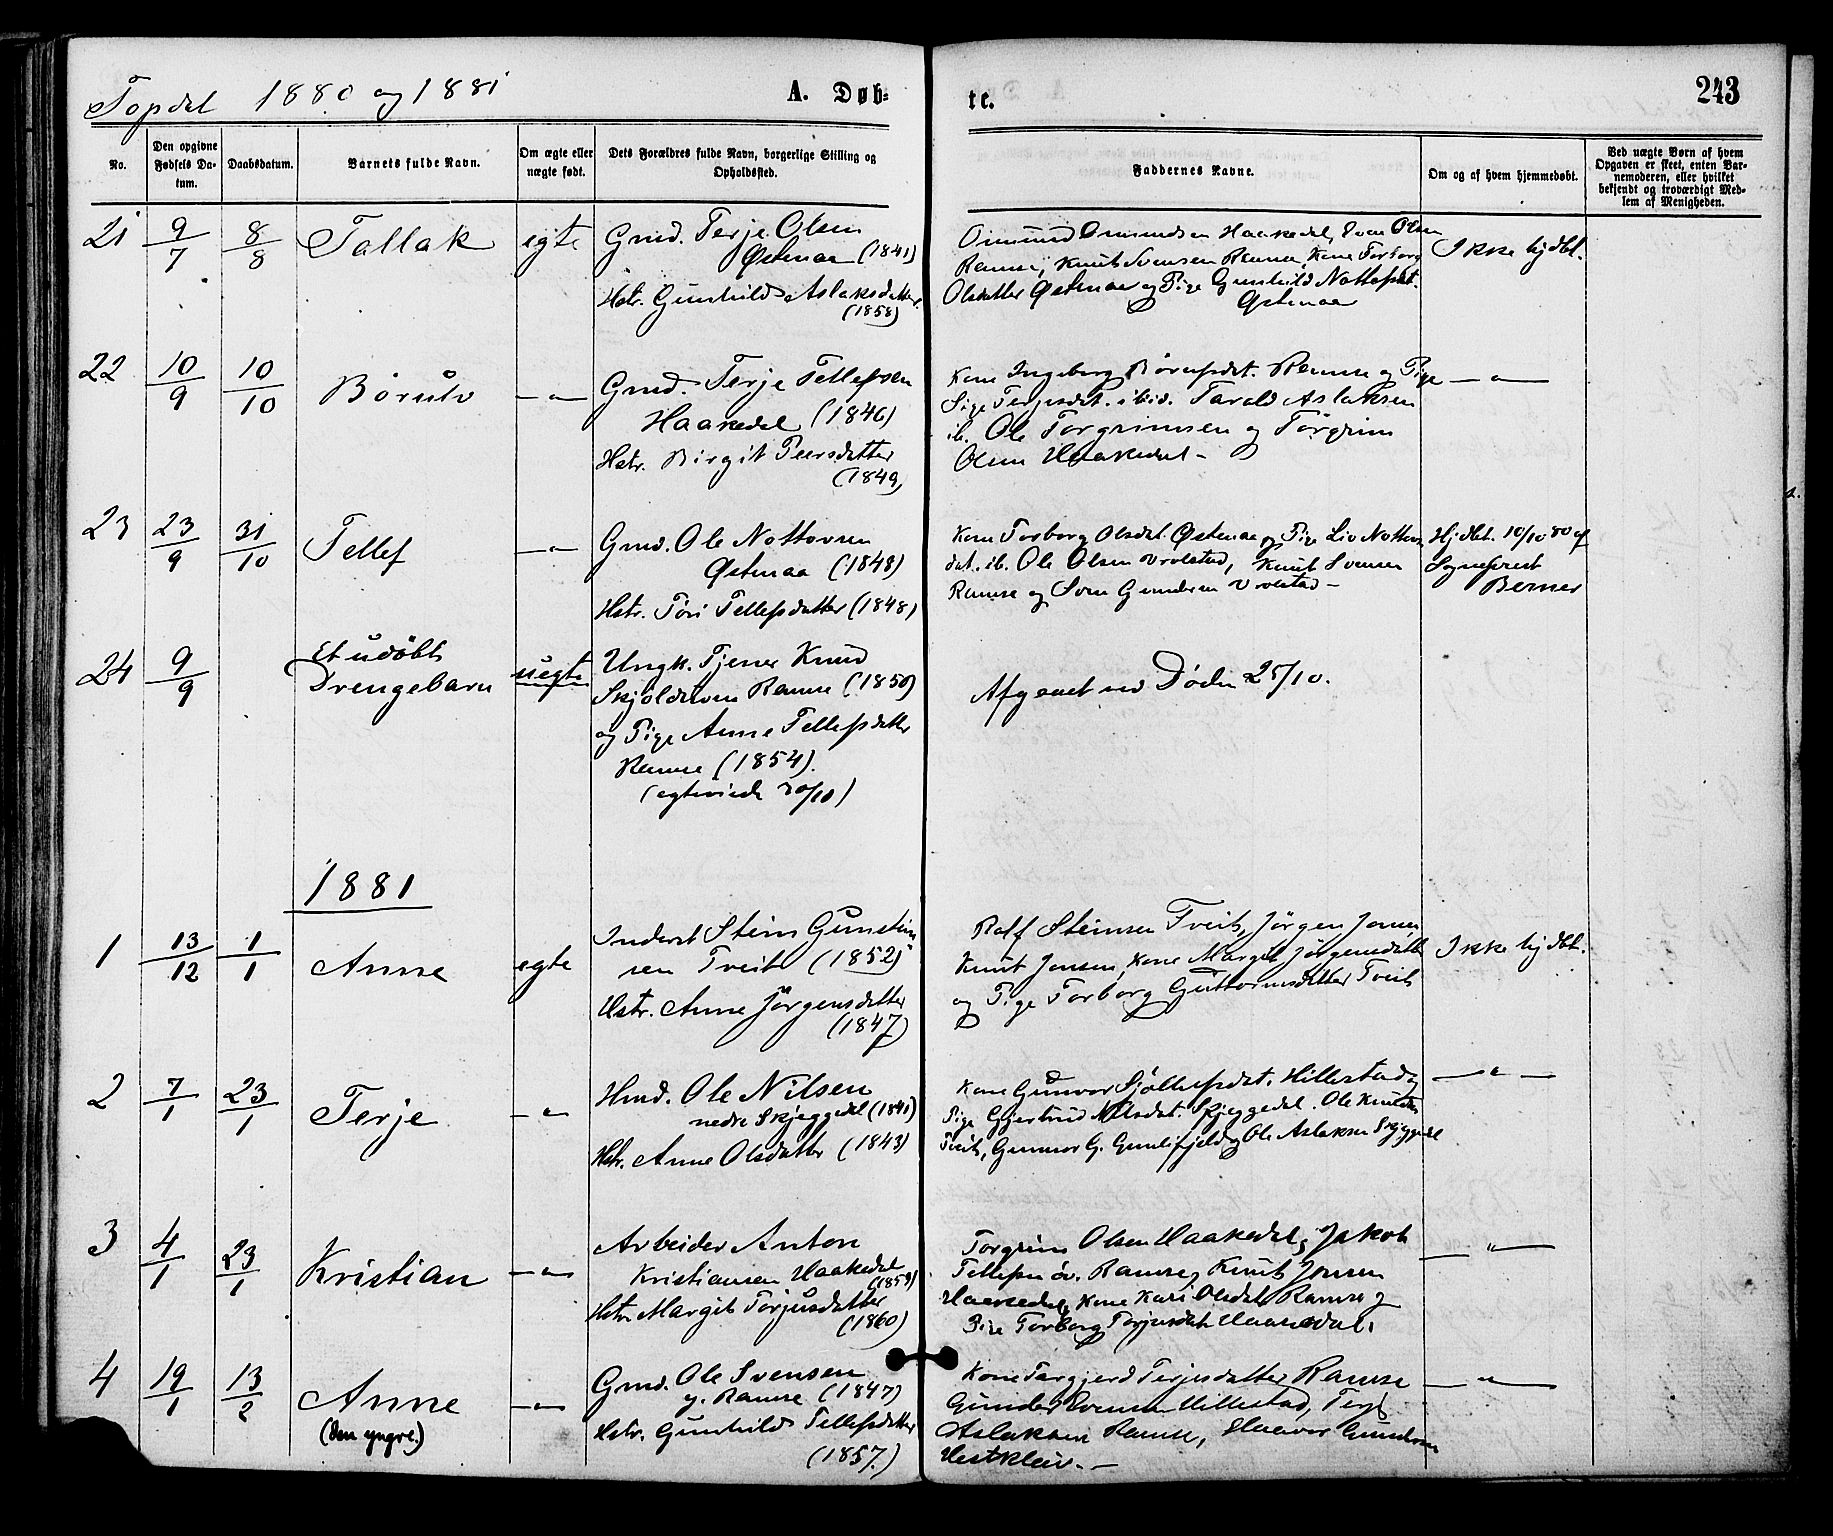 Topdal 1880 og 1881
A. Døb-
te.
243
No.
Den opgivne Fødsels Da-tum.
Daabsdatum.
Barnets fulde Navn.
Om ægte eller uægte født.
Dets Forældres fulde Navn, borgerlige Stilling og Opholdssted.
Faddernes Navne.
Om og af hvem hjemmedøbt.
Ved uægte Børn af hvem Opgaven er skeet, enten Bar-nemoderen, eller hvilket bekjendt og troværdigt Med-lem af Menigheden.
21 9/7 8/8 Tallak egte
Gmd. Terje Olsen
Østenaa (1841)
Hstr. Gunhild Aslaksdatter
(1858)
Omund Omundsen Haakedal, Olsen
Ramse, Knut Svensen Ramse, Kone Torborg
Olsdatter Østenaa og Pige Gunhild
Østenaa
Ikke hjdbt.
22 10/9 10/10 Børulv — " —
Gmd. Terje Tellefsen
Haakedal (1846)
Hstr. Birgit Peersdatter
(1849)
Kone Ingeborg Ramse og Pige
Terjesdat. ibid. Tarald Aslaksen
ib. Ole Torgrimsen og Torgrim
Olsen Haakedal —
— " —
23 23/9 31/10 Tellef — " —
Gmd. Ole Nottovsen
Østenaa (1848)
Hstr. Tøri Tellefsdatter (1848)
Kone Torborg Olsdat. Østenaa og Pige Liv
dat. ib. Ole Olsen Vrolstad, Knut Svensen
Ramse og Sven Gundersen Vrolstad —
Hjdbt. 10/10 80 af
Sogneprest
Berner
24 9/9 Et udøbt
Drengebarn uegte
Ungk. Tjener Knud
Skjoldulvsen Ramse (1850)
og Pige Anne Tellefsdatter
Ramse (1854).
(egteviede 30/10)
Afgaaet ved Døden 25/10.
1881
1 13/12 1/1 Anne egte
Inderst Stein Gunstein
sen Tveit (1852)
Hstr. Anne Jörgensdatter
(1847)
Rolf Steinsen Tveit, Jörgen Jonsen
Knut Jonsen, Kone Margit Jörgensdatter
og Pige Torborg Guttormsdatter Tveit
Ikke hjdbt.
2 7/1 23/1 Terje — " —
Hmd. Ole Nilsen
nedre Skjeggedal (1841)
Hstr. Anne Olsdatter (1843)
Kone Gunvor Hillestad,
Pige Gjertrud Nilsdat. Skjeggedal. Ole Knutsen
Tveit, Gunvor G. og Ole Aslaksen Skjeggedal
— " —
3 4/1 23/1 Kristian — " —
Arbeider Anton
Kristiansen Haakedal
(1859)
Hstr Margit Torjusdatter
(1860)
Torgrim Olsen Haakedal, Jakob
Tellefsen öv. Ramse, Knut Jonsen
Haakedal, Kone Kari Olsdat. Ramse og
Pige Torborg Torjusdat. Haakedal.
— " —
4 19/1 13/2 Anne — " —
(den yngre.)
Gmd. Ole Svensen
y. Ramse (1847)
Hstr. Gunhild Tellefsdatter
(1857.)
Kone Targjerd Terjesdatter Ramse
Gunder Svensen Hillestad, Terje
Aslaksen Ramse, Haavor Gundersen
Hestkleiv. —
— " —